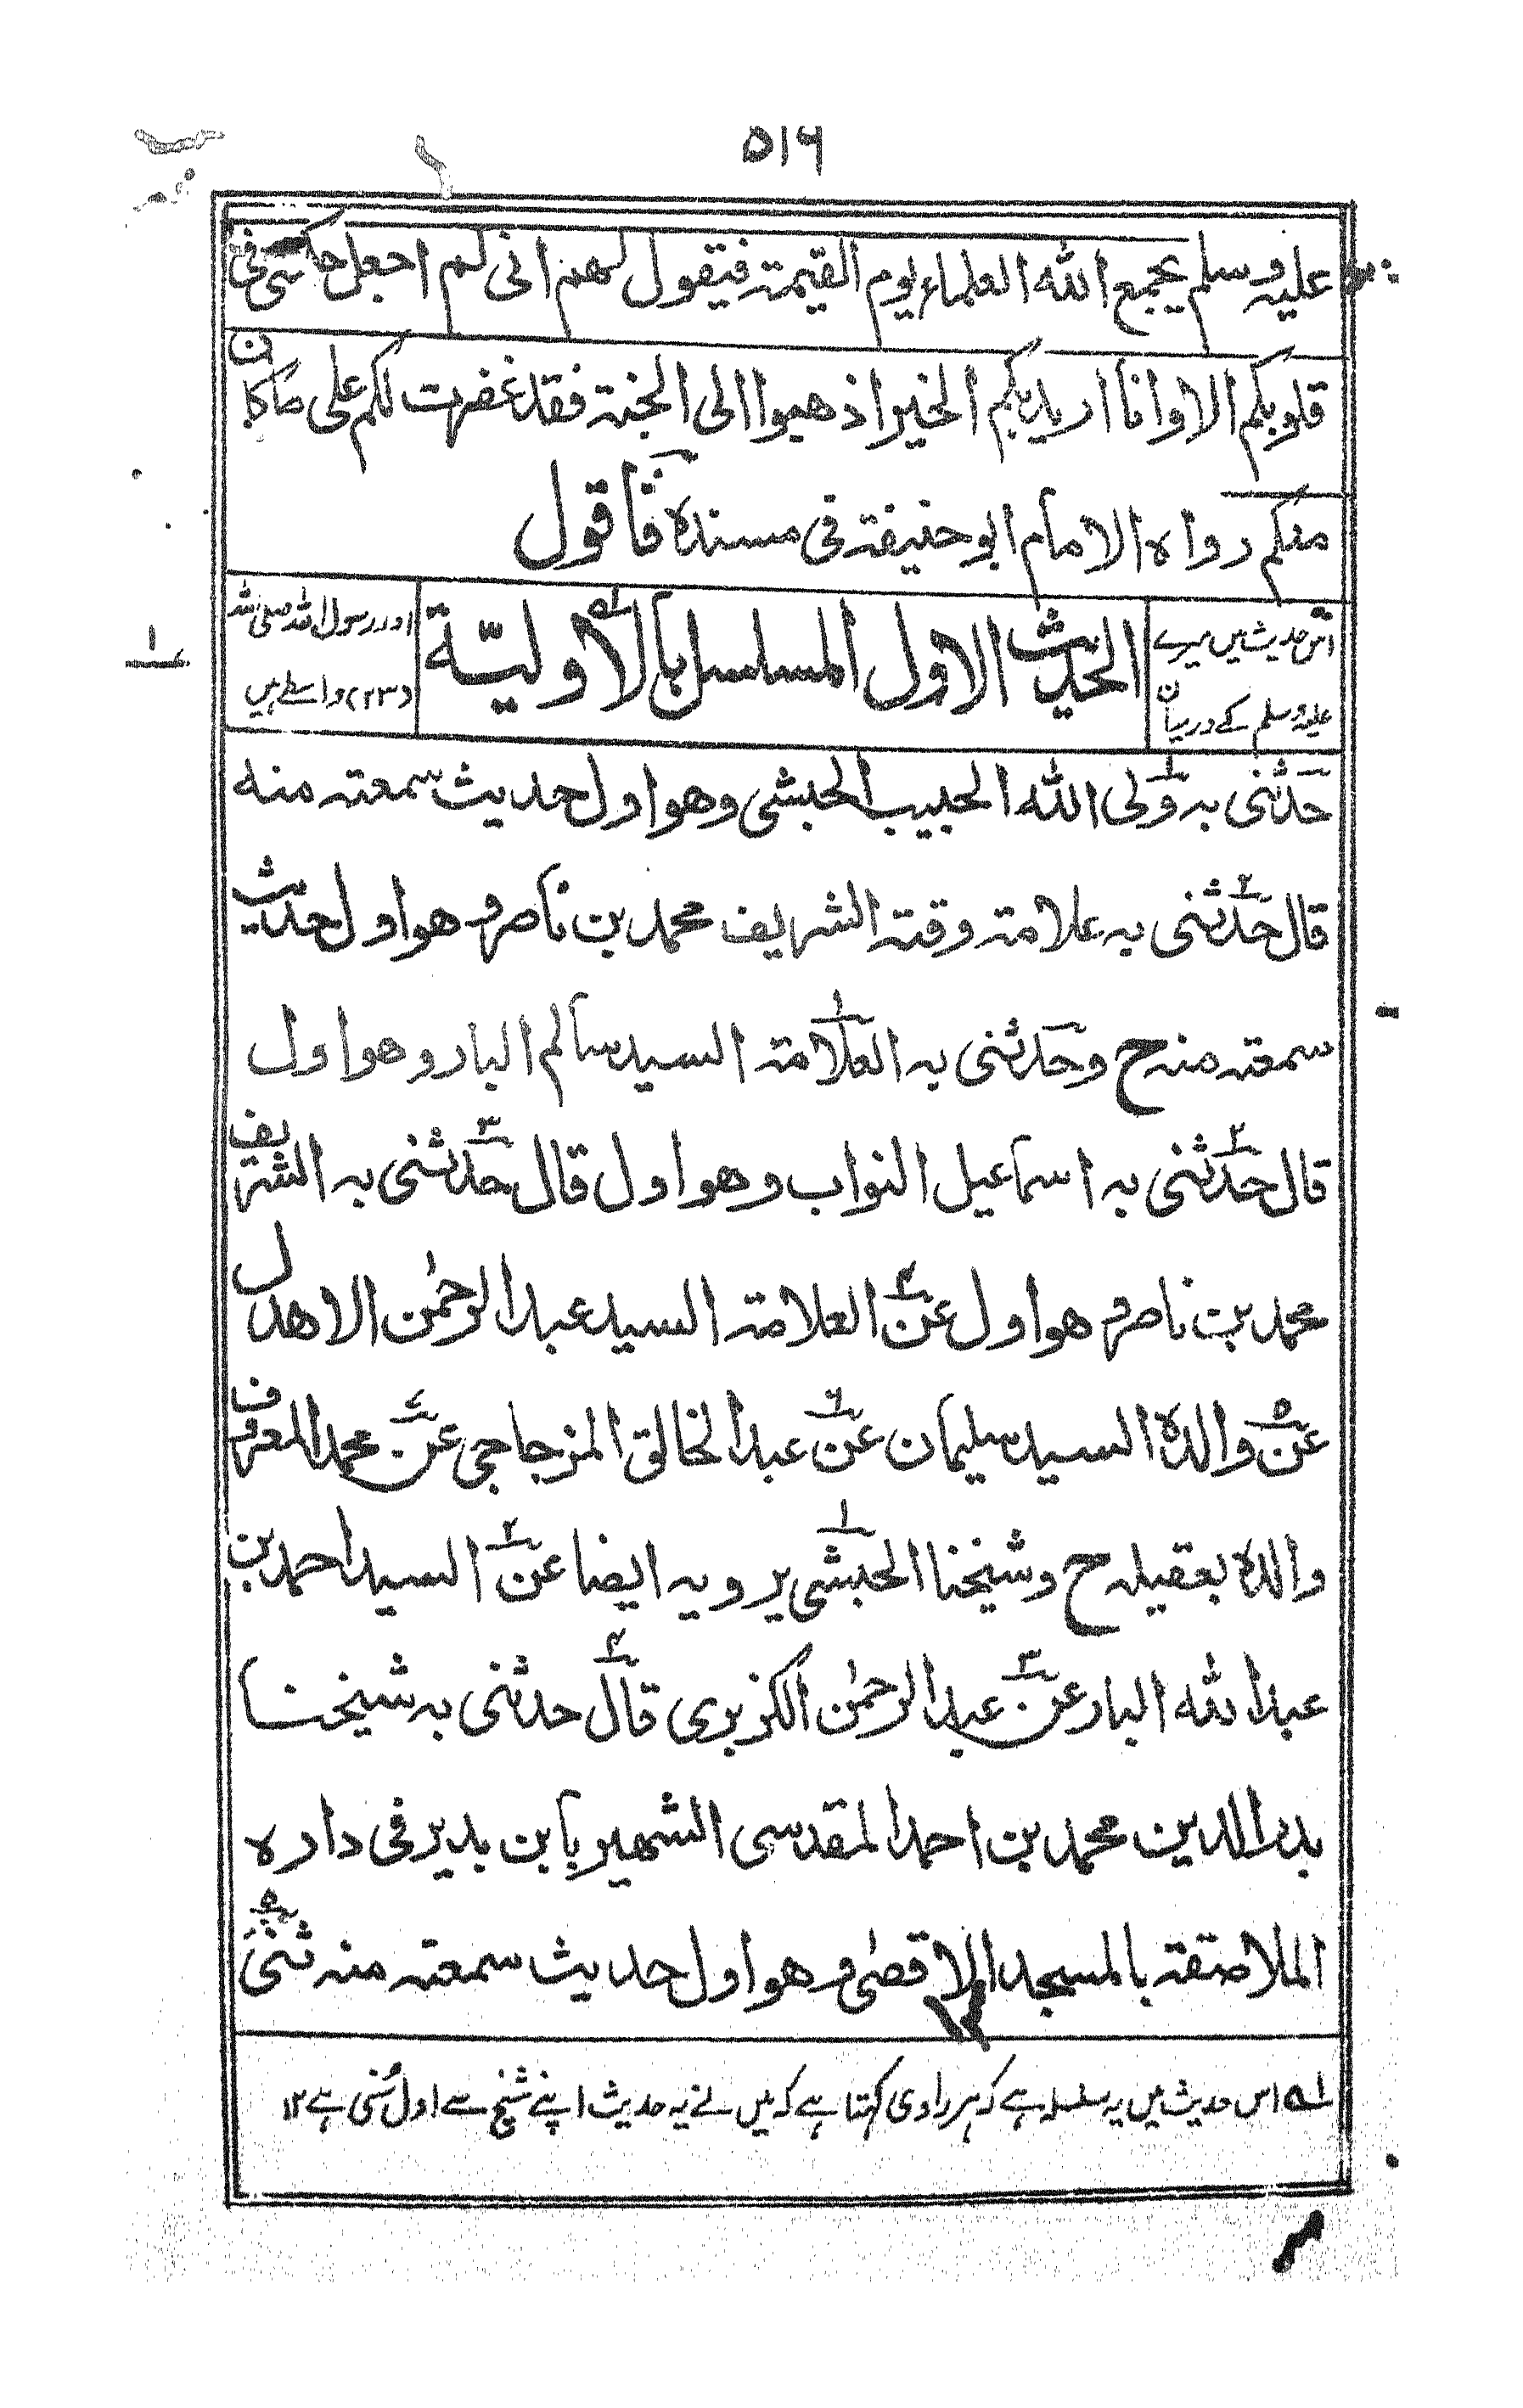 ۵۱۶
عليه وسلم يجمع الله العلماء يوم القيمة فيقول لهم انى لم اجعل حكمتى فى
قلوبكم الا وانا اريد بكم الخير اذهبوا الى الجنة فقد غفرت لكم على ما كان
منكم رواه الامام ابو حنيفة فى مسنده فاقول
اس حدیث میں میرے
اور رسول اللہ صلی اللہ
الحديث الاول المسلسل بالاولیّة
علیہ وسلم کے درمیان
(۲۳) واسطے ہیں
۱
حدثنى به ولى الله الحبيب الحبشى وهو اول حديث سمعته منه
قال حدثنى به علامة وقته الشريف محمد بن ناصر وهو اول حديث
سمعته منه ح وحدثنى به العلامة السيد سالم البار وهو اول
قال حدثنى به اسماعيل النواب وهو اول قال حدثنى به الشريف
محمد بن ناصر وهو اول عن العلامة السيد عبد الرحمٰن الاهدل
عن والده السيد سليمان عن عبد الخالق المزجاجى عن محمد المعروف
والده بعقيله ح وشيخنا الحبشى يرويه ايضا عن السيد احمد بن
عبد الله البار عن عبد الرحمٰن الكزبرى قال حدثنى به شيخنا
بدر الدين محمد بن احمد المقدسى الشهير بابن بدير فى داره
الملاصقة بالمسجد الاقصٰى وهو اول حديث سمعته منه ثنى
۱ـه اس حدیث میں یہ سلسلہ ہے کہ ہر راوی کہتا ہے کہ میں نے یہ حدیث اپنے شیخ سے اول سُنی ہے ۱۲